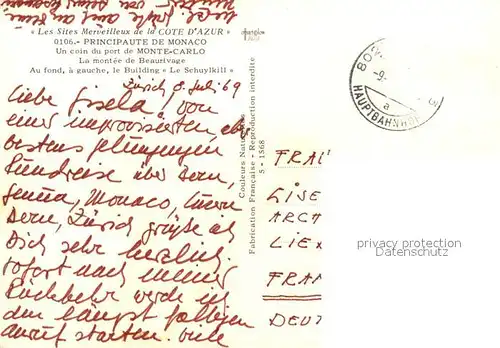 herzl. Grüße auch an Deine
"Les Sites Merveilleux de la COTE D'AZUR"
0106.- PRINCIPAUTE DE MONACO
Un coin du port de MONTE-CARLO
La montée de Beaurivage
Au fond, à gauche, le Building "Le Schuylkill"
Zürich 8. Juli 69
Liebe Gisela! Von
einer improvisierten, aber
bestens gelungenen
Rundreise über Bern,
Genua, Monaco, Luzern
Bern, Zürich grüße ich
Dich sehr herzlich.
sofort nach meiner
Rückkehr werde ich
den längst fälligen
anruf starten. viele
Couleurs Naturelles
Fabrication Française - Reproduction interdite
S - 1568
HAUPTBAHNHOF
a
FRAU
LISE
ARCH
LIE
FRAN
DEUT
privacy protection
Datenschutz